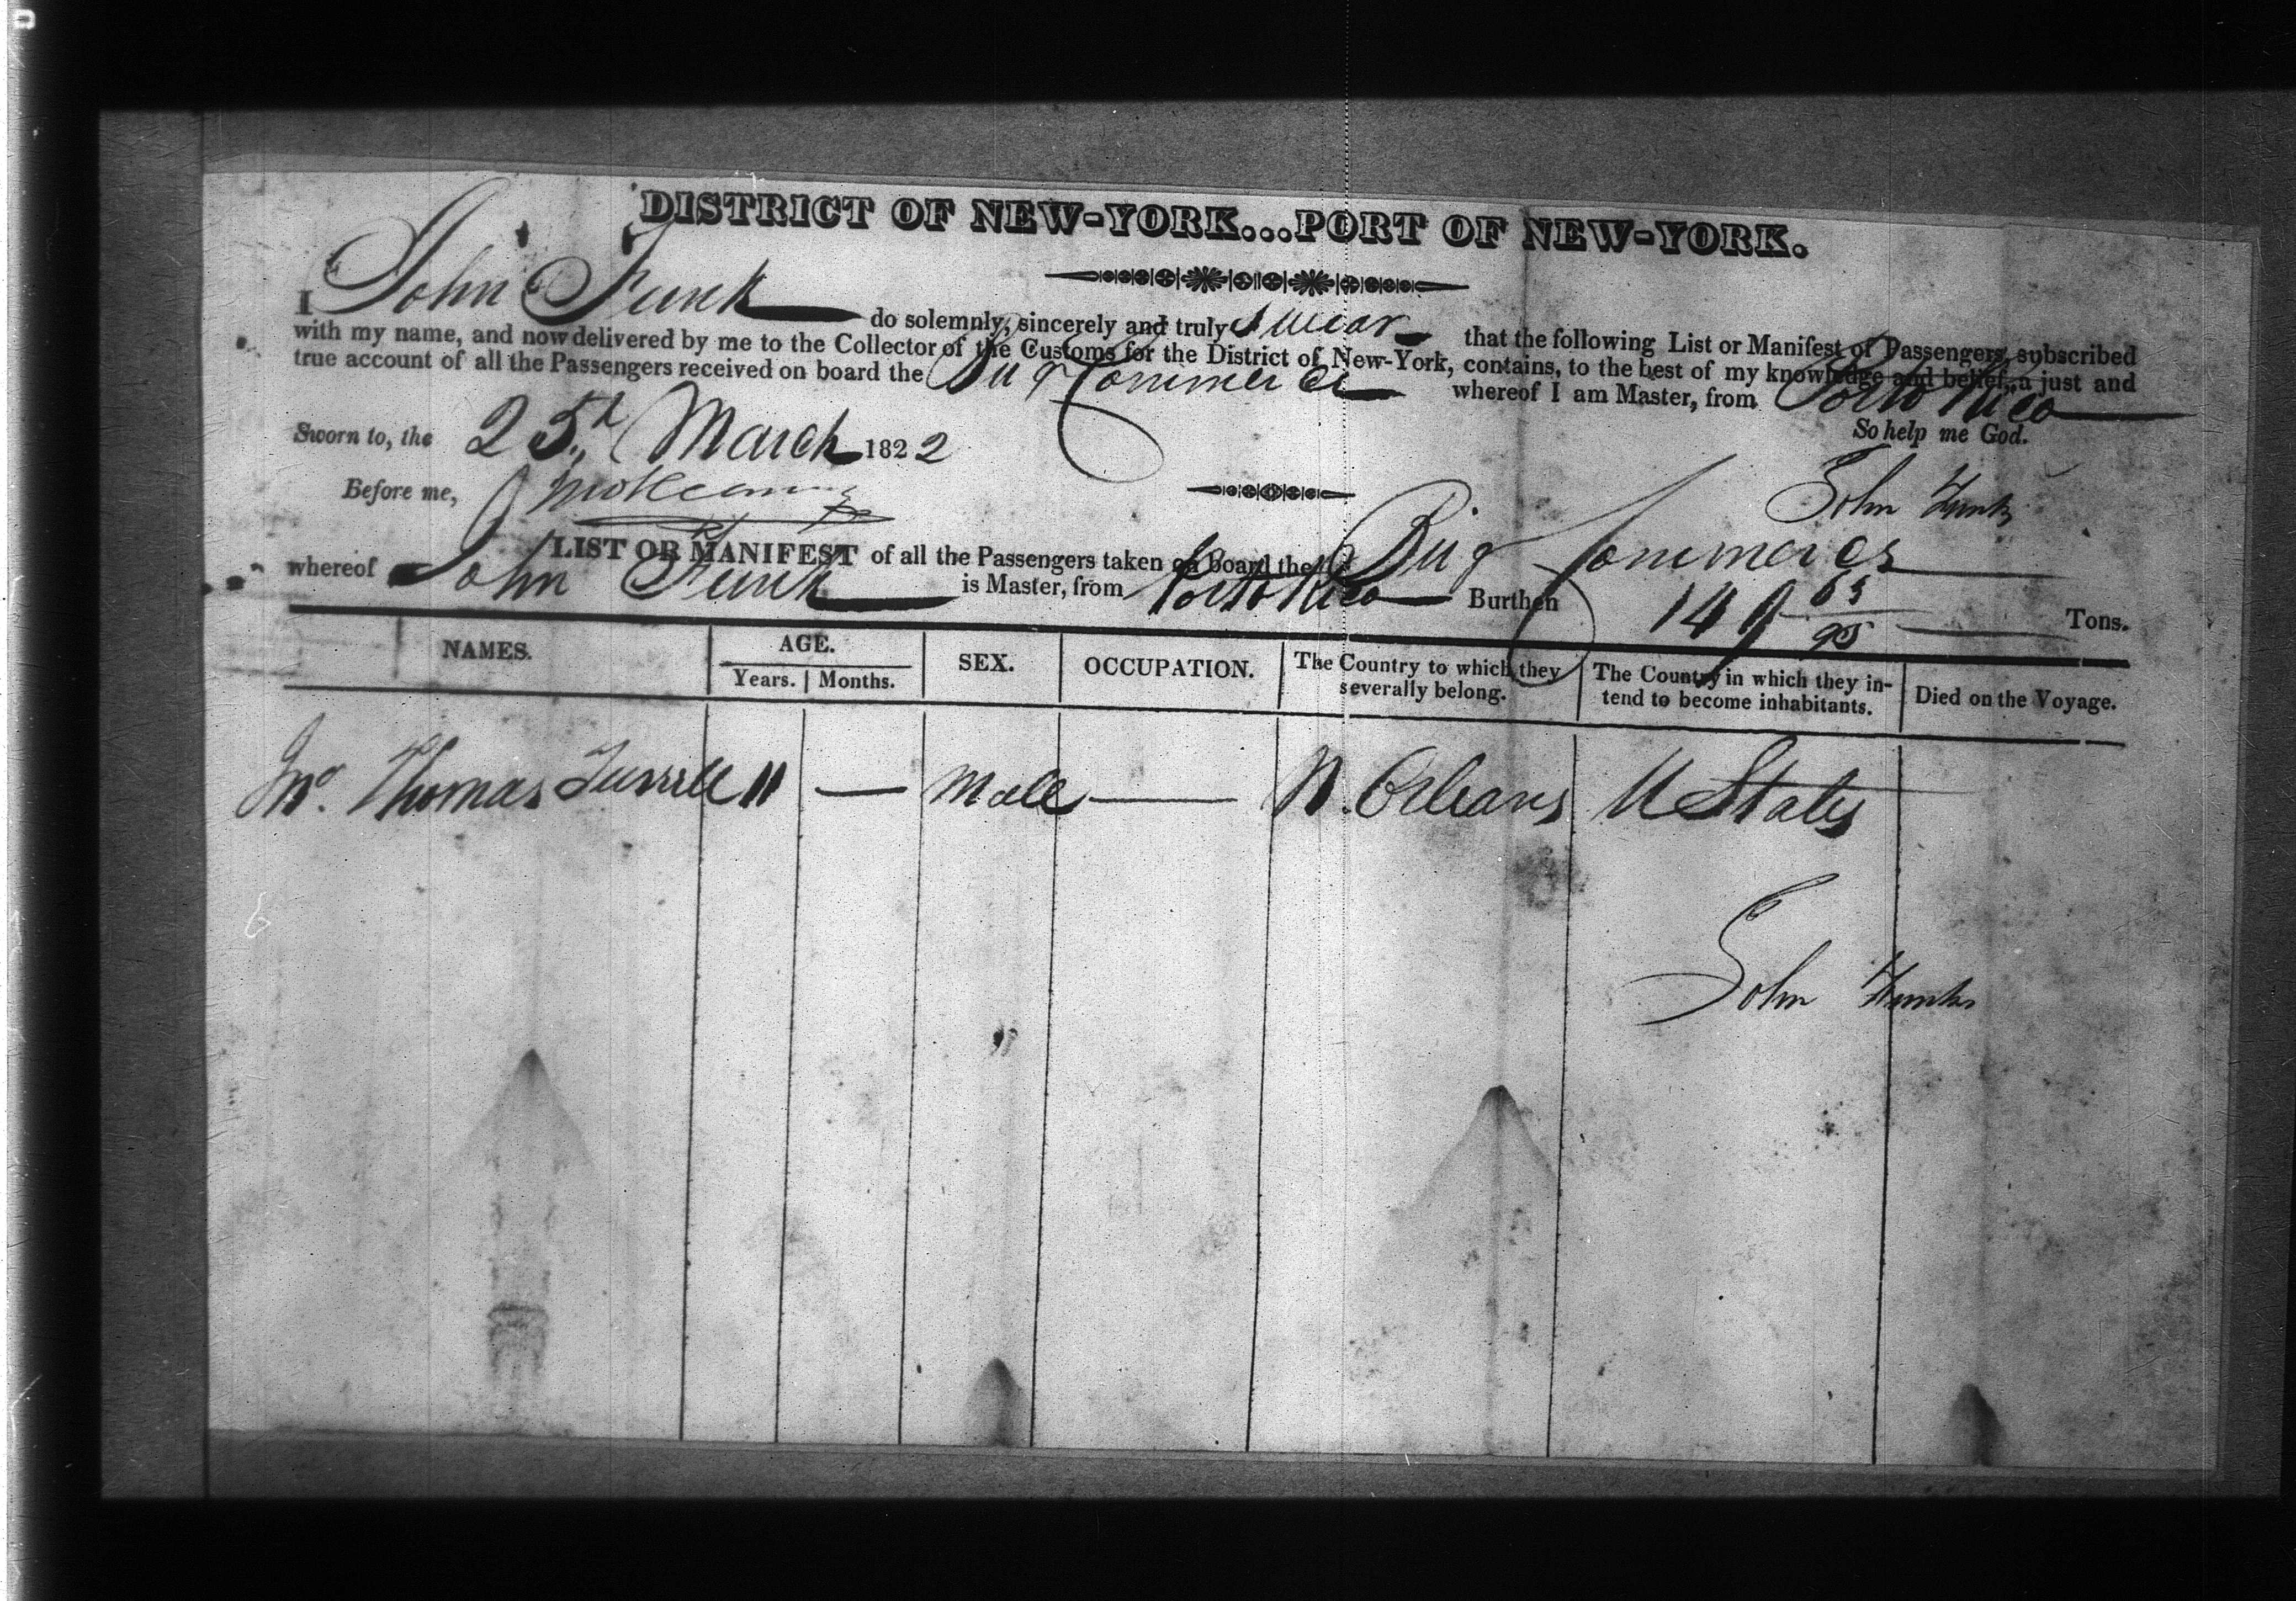 DISTRICT OF NEW-YORK...PORT OF NEW-YORK.
I John Funk do solemnly, sincerely and truly swear that the following List or Manifest of Passengers, subscribed
with my name, and now delivered by me to the Collector of the Customs for the District of New-York, contains, to the best of my knowledge and belief, a just and
true account of all the Passengers received on board the Brig Commerce whereof I am Master, from Porto Rico
So help me God.
Sworn to, the 25th March 1822
Before me,
John Funk
LIST OR MANIFEST of all the Passengers taken on board the Brig Commerce
whereof John Funk is Master, from Porto Rico Burthen Tons.
NAMES. AGE. SEX. OCCUPATION. The Country to which they severally belong. The Country in which they intend to become inhabitants. Died on the Voyage.
Years. Months.
Thomas 11 — Male — N. Orleans U States
John Funk